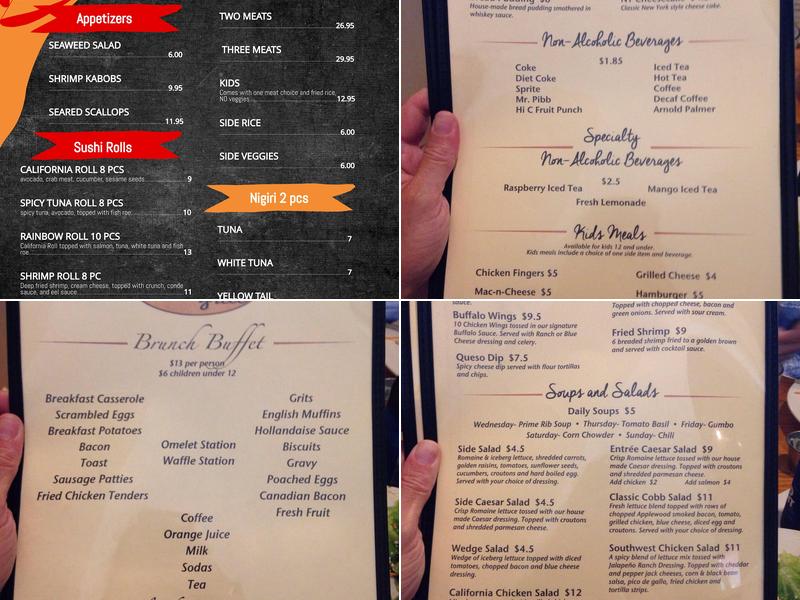 Appetizers
SEAWEED SALAD
6.00
SHRIMP KABOBS
9.95
SEARED SCALLOPS
11.95
Sushi Rolls
CALIFORNIA ROLL 8 PCS
avocado, crab meat, cucumber, sesame seeds
9
SPICY TUNA ROLL 8 PCS
spicy tuna, avocado, topped with fish roe
10
RAINBOW ROLL 10 PCS
California Roll topped with salmon, tuna, white tuna and fish
roe
13
SHRIMP ROLL 8 PC
Deep fried shrimp, cream cheese, topped with crunch, conde
sauce, and eel sauce
11
TWO MEATS
26.95
THREE MEATS
29.95
KIDS
Comes with one meat choice and fried rice,
NO veggies
12.95
SIDE RICE
6.00
SIDE VEGGIES
6.00
Nigiri 2 pcs
TUNA
7
WHITE TUNA
7
YELLOW TAIL
House-made bread pudding smothered in
whiskey sauce.
Classic New York style cheese cake.
Non-Alcoholic Beverages
$1.85
Coke
Diet Coke
Sprite
Mr. Pibb
Hi C Fruit Punch
Iced Tea
Hot Tea
Coffee
Decaf Coffee
Arnold Palmer
Specialty
Non-Alcoholic Beverages
$2.5
Raspberry Iced Tea
Mango Iced Tea
Fresh Lemonade
Kids Meals
Available for kids 12 and under.
Kids meals include a choice of one side item and beverage.
Chicken Fingers $5
Grilled Cheese $4
Mac-n-Cheese $5
Hamburger $5
Brunch Buffet
$13 per person
$6 children under 12
Breakfast Casserole
Scrambled Eggs
Breakfast Potatoes
Bacon
Toast
Sausage Patties
Fried Chicken Tenders
Omelet Station
Waffle Station
Grits
English Muffins
Hollandaise Sauce
Biscuits
Gravy
Poached Eggs
Canadian Bacon
Fresh Fruit
Coffee
Orange Juice
Milk
Sodas
Tea
sauce.
Buffalo Wings $9.5
10 Chicken Wings tossed in our signature
Buffalo Sauce. Served with Ranch or Blue
Cheese dressing and celery.
Queso Dip $7.5
Spicy cheese dip served with flour tortillas
and chips.
Topped with chopped cheese, bacon and
green onions. Served with sour cream.
Fried Shrimp $9
6 breaded shrimp fried to a golden brown
and served with cocktail sauce.
Soups and Salads
Daily Soups $5
Wednesday- Prime Rib Soup • Thursday- Tomato Basil • Friday- Gumbo
Saturday- Corn Chowder • Sunday- Chili
Side Salad $4.5
Romaine & iceberg lettuce, shredded carrots,
golden raisins, tomatoes, sunflower seeds,
cucumbers, croutons and hard boiled egg.
Served with your choice of dressing.
Side Caesar Salad $4.5
Crisp Romaine lettuce tossed with our house
made Caesar dressing. Topped with croutons
and shredded parmesan cheese.
Wedge Salad $4.5
Wedge of iceberg lettuce topped with diced
tomatoes, chopped bacon and blue cheese
dressing.
California Chicken Salad $12
Entrée Caesar Salad $9
Crisp Romaine lettuce tossed with our house
made Caesar dressing. Topped with croutons
and shredded parmesan cheese.
Add chicken $2 Add salmon $4
Classic Cobb Salad $11
Fresh lettuce blend topped with rows of
chopped Applewood smoked bacon, tomato,
grilled chicken, blue cheese, diced egg and
croutons. Served with your choice of dressing.
Southwest Chicken Salad $11
A spicy blend of lettuce mix tossed with
Jalapeño Ranch Dressing. Topped with cheddar
and pepper jack cheeses, corn & black bean
salsa, pico de gallo, fried chicken and
tortilla strips.